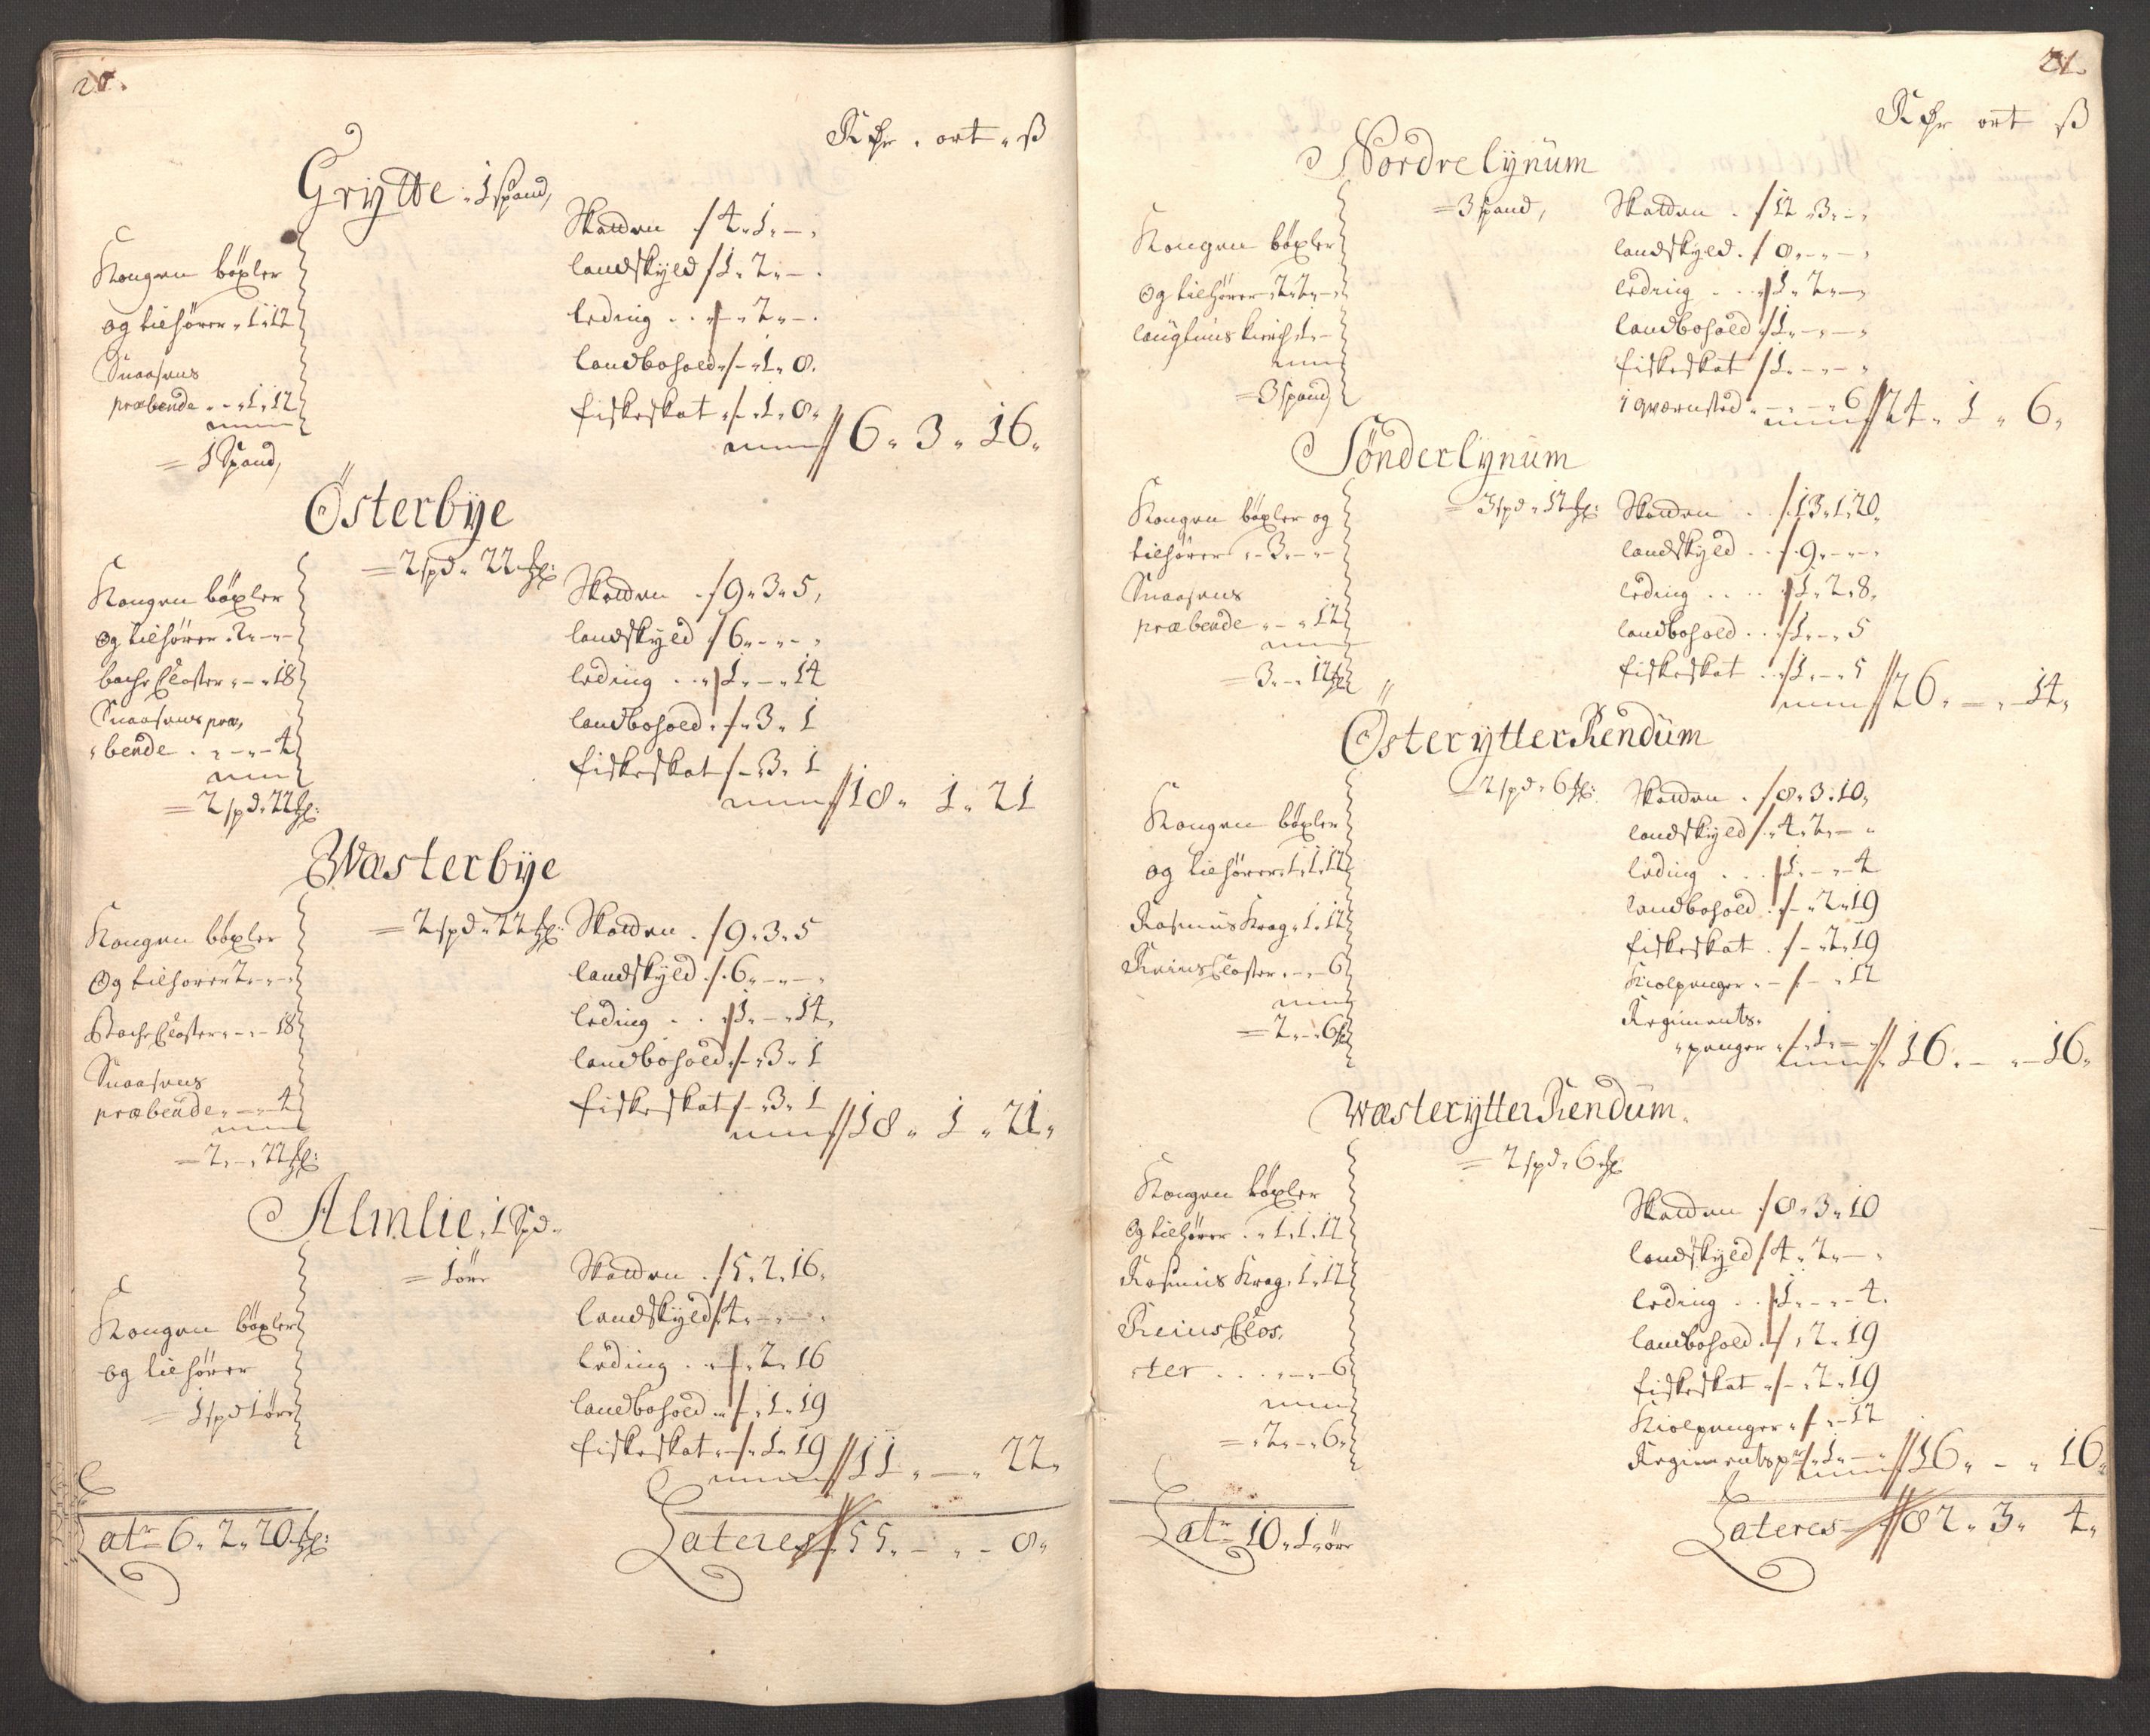 20.
Rdr. ort. ß
Grytte. 1 spand,
Kongen böxler
og tilhörer. 1. 12
Snaasens
præbende. - 1. 12
= 1 Spand,
Skatten. 4. 1. -.
landskyld 1. 2. -.
leding . . - . 2. -.
landbohold - . 1. 8.
fiskeskat - . 1. 8.
6. 3. 16.
Österbye
= 2 spd. 22 ##
Kongen böxler
og tilhörer. 2. - -
bache Closter. - . 18
Snaasens præ,
bende . . - . - 4
= 2 spd. 22 ##
Skatten . 9. 3. 5,
landskyld 6. - . - .
leding . . 1. - . 14
landbohold . - . 3. 1
fiskeskat - . 3. 1
18. 1. 21
Wæsterbye
= 2 spd. 22 ##
Kongen böxler
Og tilhorer 2. - . -
Bache Closter. - . - 18
Snaasens
præbende. - . 4
= 2. - . 22 ##
Skatten . 9. 3. 5
landskyld . 6. - . - .
leding . . 1. - . 14.
landbohold - . 3. 1
fiskeskat - . 3. 1
18. 1. 21.
Almlie. 1 Spd.
= 1 öre
Kongen böxler
og tilhörer
= 1 spd 1 öre
Skatten . 5. 2. 16.
landskyld 4. - . - .
leding . . - . 2. 16
landbohold . - . 1. 19
fiskeskat . - . 1. 19
11. - . 22.
Latr 6. 2. 20 ##
Lateres 55. - . - 8.
21.
Rdr ort ß
Nordre lynum
= 3 spand,
Kongen böxler
og tilhörer. 2. 2. -.
laugtuns kirche 1. -
= 3 spand,
Skatten . 12. 3. -.
landskyld . 8. - . - .
leding . . 1. 2. -
landbohold 1. - . - .
fiskeskat 1. - . - .
1 qværnsted. - . - . 6
24. 1. 6.
Sönder lynum
= 3 spd. 12 ##
Kongen böxler og
tilhörer . - 3. - . -
Snaasens
præbende . - . 12
= 3. - . 12 ##
Skatten . . 13. 1. 20.
landskyld . . 9. - . - .
leding . . . 1. 2. 8.
landbohold . . 1. - . 5
fiskeskat . 1. - . 5
26. - . 14.
Österytter Rendum
= 2 spd. 6 ##
Kongen böxler
og tilhörer. 1. 1. 12
Rasmus Krag. 1. 12
Reins Closter. - . - 6
= 2. - . 6 ##
Skatten . 8. 3. 10.
landskyld . 4. 2. - .
leding . . . 1. - . - 4
landbohold . - . 2. 19
fiskeskat . - . 2. 19
Kiolpenger. - . - . 12
Regiments.
penger . - . 1. - .
16. - . - 16.
Wæsterytter Rendum.
= 2 spd. 6 ##
Kongen böxler
Og tilhörer . . 1. 1. 12
Rasmus Krag. 1. 12
Reins Clos.
ter . . . - . - 6
= . 2. - . 6.
Skatten . 8. 3. 10
landskyld 4. 2. - .
leding . . 1. - . - 4.
landbohold . - . 2. 19
fiskeskat . - . 2. 19
Kiolpenger. - . - 12
Regimentsp. 1. - .
16. - . 16.
Latr 10. 1. öre
Lateres 82. 3. 4.